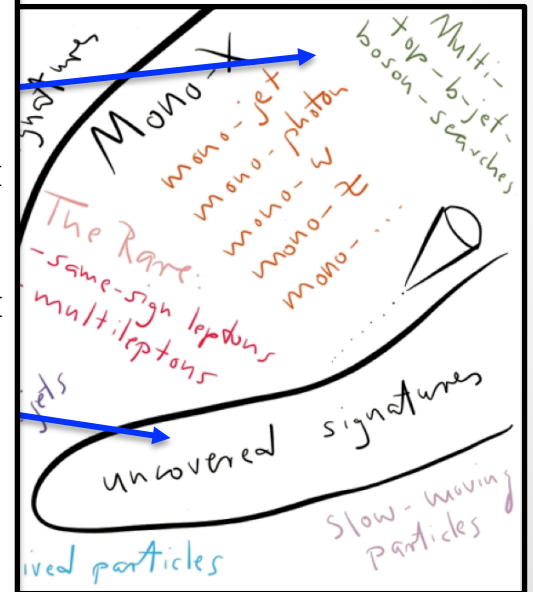 gnatures
Mono-X
mono-jet
mono-photon
mono-W
mono-Z
mono-...
Multi-
top-b-jet-
boson-searches
The Rare:
-same-sign leptons
- multileptons
jets
uncovered signatures
Slow-moving
particles
ived particles